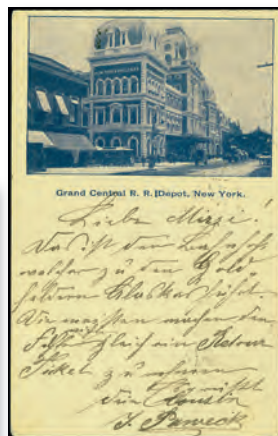 Grand Central R. R. Depot, New York.
Liebe Mizzi!
Das ist der Bahnhof
welcher zu den Gold-
feldern Alaskas führt.
Die meisten machen den
Fehler gleich ein Retour
Ticket zu nehmen